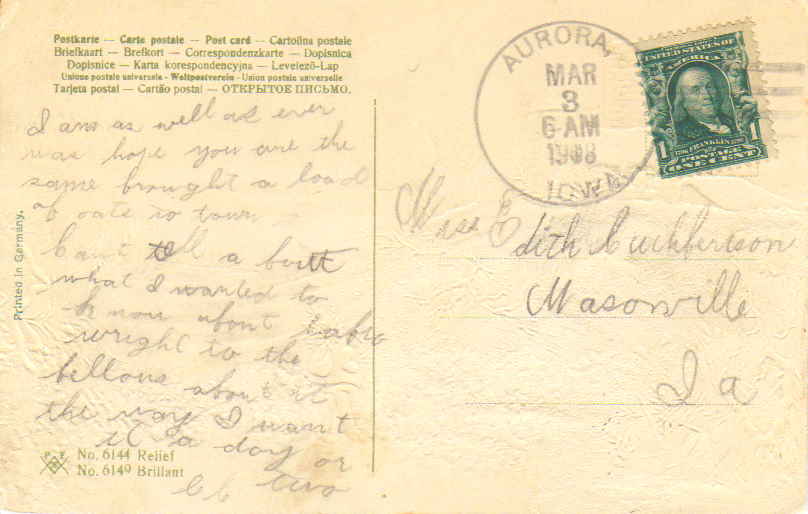 Postkarte — Carte postale — Post card — Cartolina postale
Briefkaart — Brefkort — Correspondenzkarte — Dopisnica
Dopisnice — Karta korespondencyjna — Levelező-Lap
Unione postale universale - Weltpostverein - Union postale universelle
Tarjeta postal — Cartão postal — ОТКРЫТОЕ ПИСЬМО.
I am as well as ever
was hope you are the
same brought a load
of oats to town
Cant tell a bout
what I wanted to
know about
wright to the
fellows about it
the way I want
it a day or
two
Printed in Germany.
No. 6144 Relief
No. 6149 Brillant
AURORA,
MAR
3
6-AM
1908
IOWA
UNITED STATES OF
AMERICA
1 FRANKLIN 1
POSTAGE
ONE CENT
Miss Edith Cuthbertson
Masonville
Ia